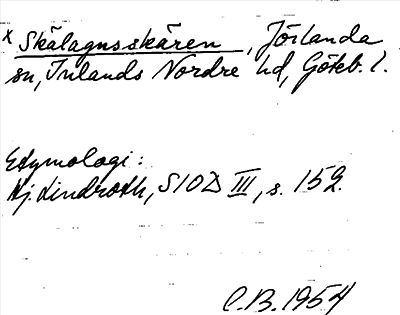 x Skälagnsskären, Jörlanda
sn, Inlands Nordre hd, Göteb. l.
Etymologi:
Hj. Lindroth, SIOD III, s. 152.
C.B. 1954